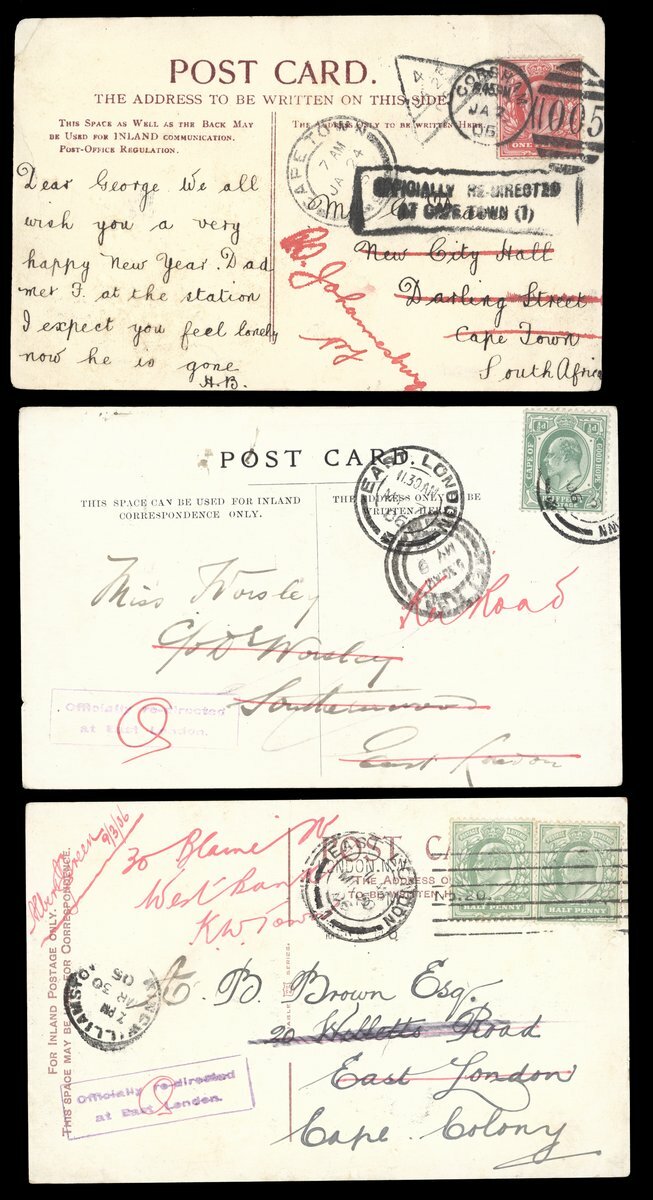 POST CARD.
THE ADDRESS TO BE WRITTEN ON THIS SIDE
THIS SPACE AS WELL AS THE BACK MAY
BE USED FOR INLAND COMMUNICATION.
POST-OFFICE REGULATION.
Dear George We all
wish you a very
happy New Year. Dad
met F. at the station
I expect you feel lonely
now he is gone
H.B.
TO BE WRITTEN HERE
CAPE TOWN
7 AM
JA 24
CORSHAM
JA 2
06
1005
OFFICIALLY RE-DIRECTED
AT CAPE TOWN (1)
New City Hall
Darling Street
Cape Town
South Africa
Johannesburg
POST CARD.
THIS SPACE CAN BE USED FOR INLAND
CORRESPONDENCE ONLY.
THE ADDRESS ONLY
BE
WRITTEN HERE
EAST LONDON
11.30 AM
06
MY
CAPE OF
GOOD HOPE
HALFPENNY
POSTAGE
Miss Worsley
C/o Dr Worsley
Southernwood
East London
Officially re-directed
at East London.
POST CA
THE ADDRESS O
TO BE WRITTEN H
9/3/06
30
West Bank
KW Town
FOR INLAND POSTAGE ONLY.
THIS SPACE MAY BE USED FOR CORRESPONDENCE.
KINGWILLIAMSTO
2 PM
AR 30
05
SERIES.
HALF PENNY
B. Brown Esq.
20 Road
East London
Cape Colony
Officially re-directed
at East London.